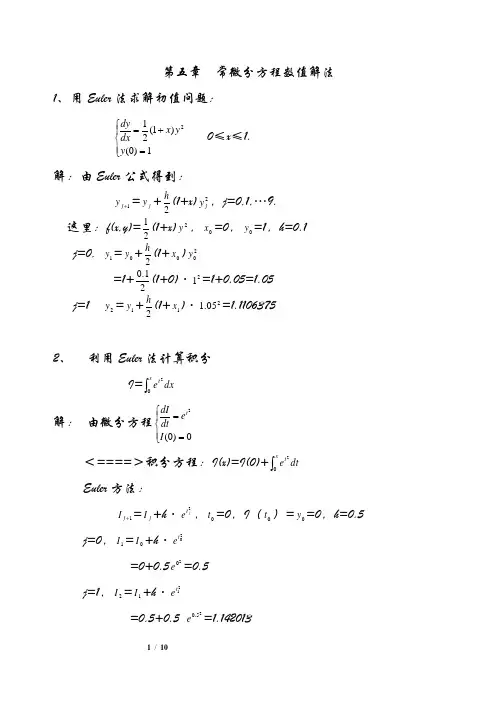 第五章 常微分方程数值解法
1、用 Euler 法求解初值问题:
{dy/dx = 1/2(1+x)y² 0≤x≤1.
y(0)=1
解:由 Euler 公式得到:
y_{j+1}=y_j+h/2(1+x)y_j²,j=0.1.…9.
这里:f(x.y)=1/2(1+x)y²,x_0=0,y_0=1,h=0.1
j=0. y_1=y_0+h/2(1+x_0)y_0²
=1+0.1/2(1+0)·1²=1+0.05=1.05
j=1 y_2=y_1+h/2(1+x_1)·1.05²=1.1106375
2、 利用 Euler 法计算积分
I=∫_0^x e^{t²}dx
解: 由微分方程{dI/dt=e^{t²}
I(0)=0
<====>积分方程:I(x)=I(0)+∫_0^x e^{t²}dt
Euler 方法:
I_{j+1}=I_j+h·e^{t_j²},t_0=0,I(t_0)=y_0=0,h=0.5
j=0,I_1=I_0+h·e^{t_0²}
=0+0.5e^{0²}=0.5
j=1,I_2=I_1+h·e^{t_1²}
=0.5+0.5 e^{0.5²}=1.142013
1 / 10